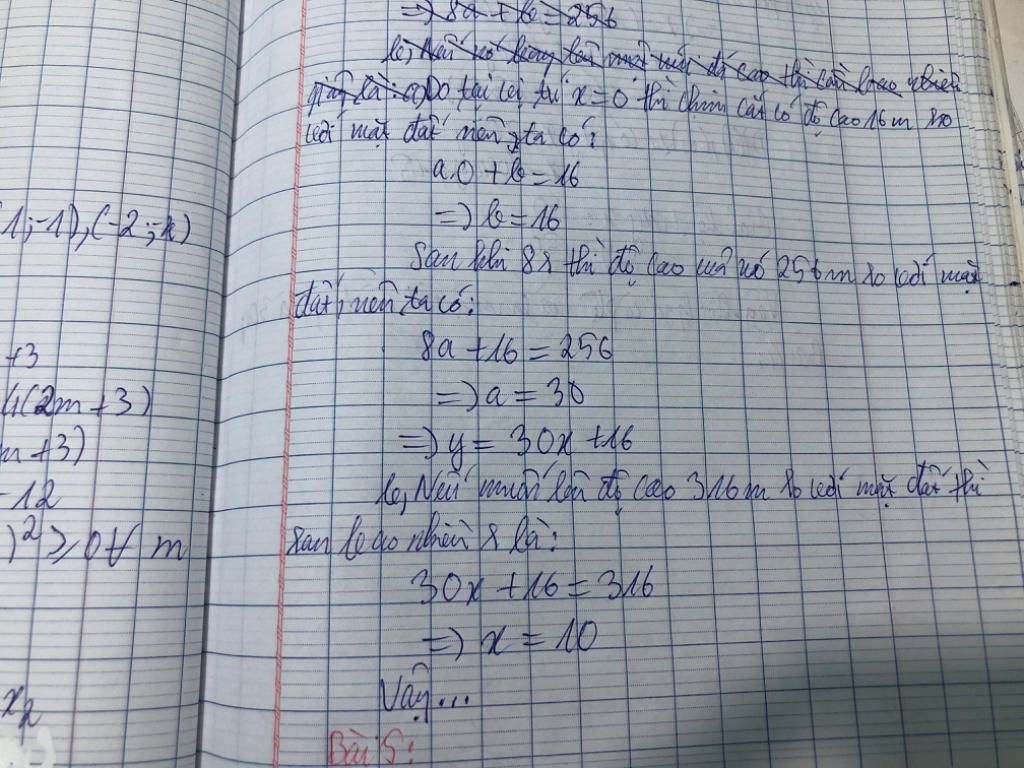 => 8a + b = 256
giây là: a) Do tại vị trí x = 0 thì chim cắt có độ cao 16m so
với mặt đất nên ta có:
a.0 + b = 16
=> b = 16
Sau khi 8s thì độ cao của nó 256m so với mặt
đất, nên ta có:
8a + 16 = 256
=> a = 30
=> y = 30x + 16
b, Nếu muốn lên độ cao 316m so với mặt đất thì
sau bao nhiêu s là:
30x + 16 = 316
=> x = 10
Vậy...
Bài 5:
1;-1), (-2;-
+3
4(2m+3)
m+3)
-12
)² ≥ 0 ∀ m
x₂